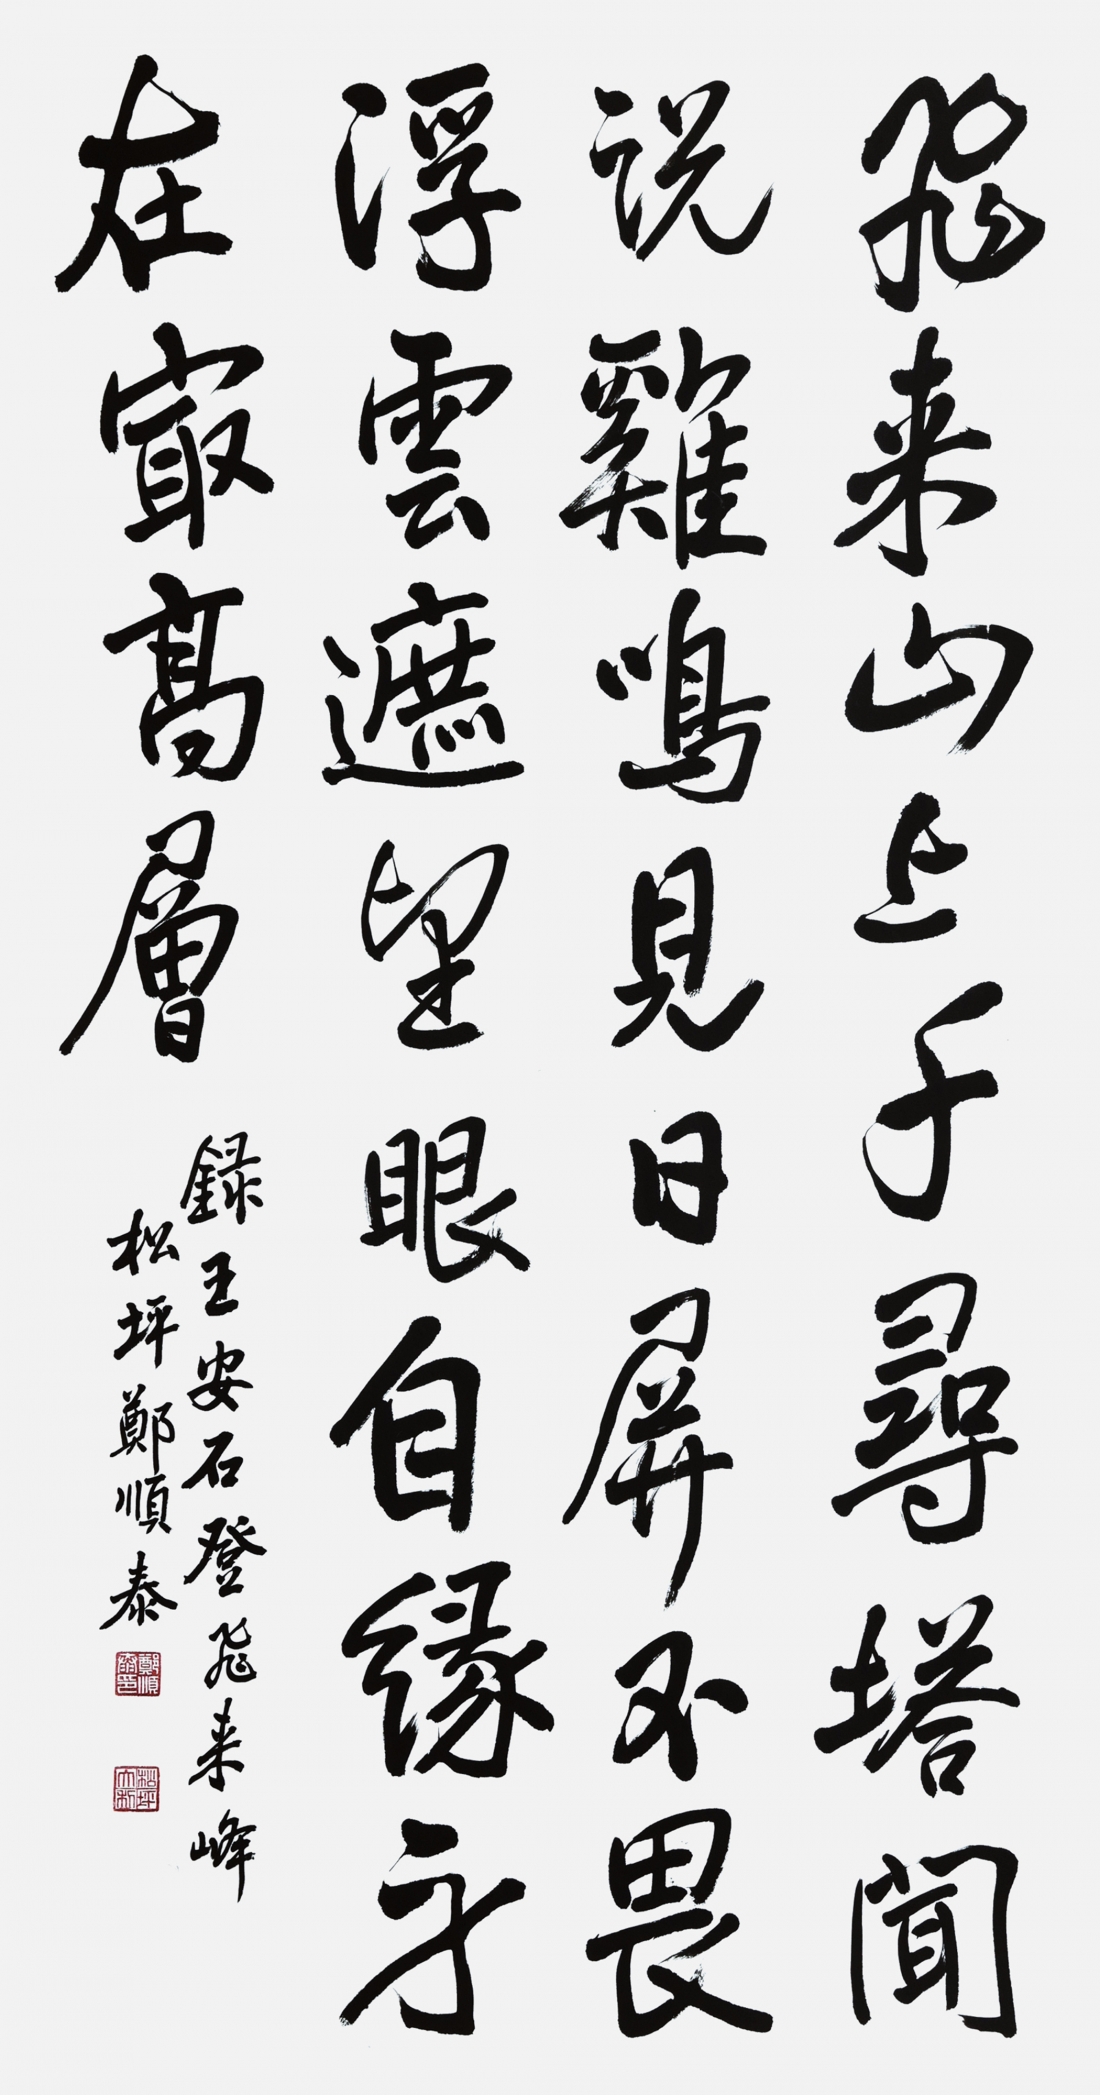 飛来山上千尋塔聞
説雞鳴見日屏不畏
浮雲遮望眼自緣身
在㝡髙層
録王安石登飛来峰
松坪鄭順泰
鄭順泰印
松坪